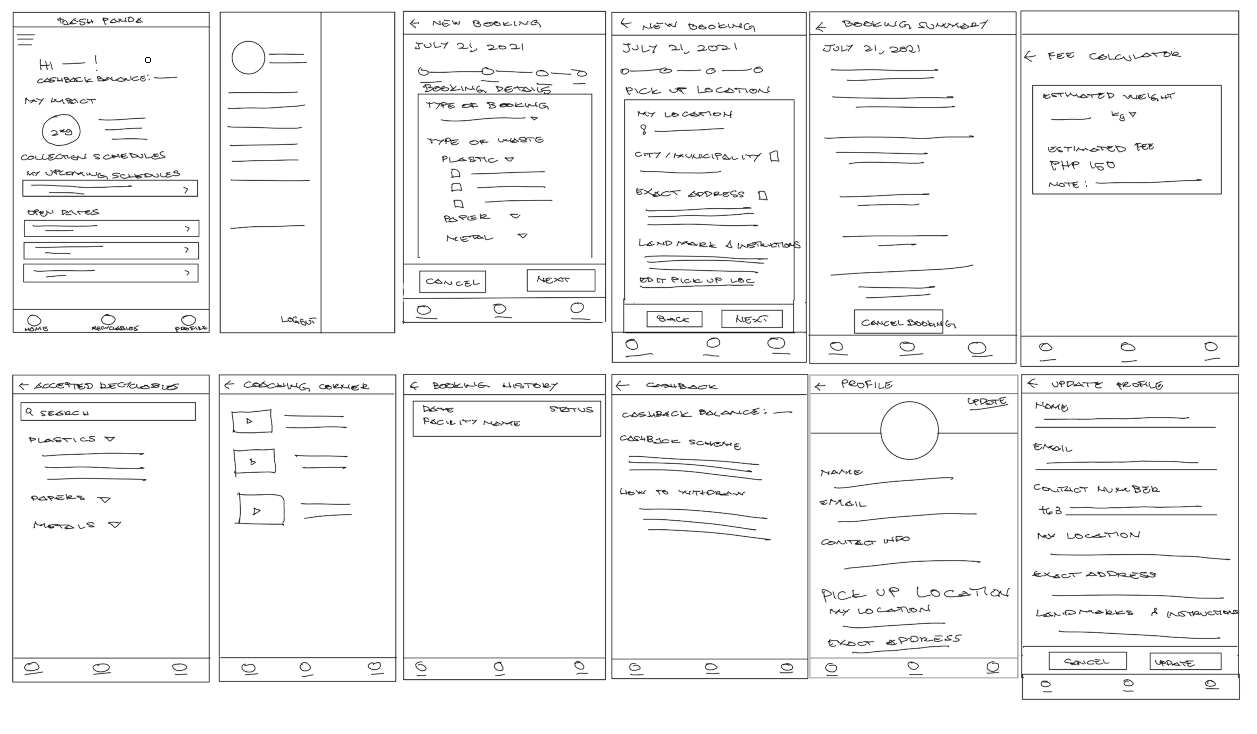 DASH PANDA
HI !
CASHBACK BALANCE:
MY IMPACT
2kg
COLLECTION SCHEDULES
MY UPCOMING SCHEDULES
OPEN DATES
HOME RECYCLABLES PROFILE
LOGOUT
← NEW BOOKING
JULY 21, 2021
BOOKING DETAILS
TYPE OF BOOKING
TYPE OF WASTE
PLASTIC
PAPER
METAL
CANCEL NEXT
← NEW BOOKING
JULY 21, 2021
PICK UP LOCATION
MY LOCATION
CITY / MUNICIPALITY
EXACT ADDRESS
LANDMARK & INSTRUCTIONS
EDIT PICK UP LOC
BACK NEXT
← BOOKING SUMMARY
JULY 21, 2021
CANCEL BOOKING
← FEE CALCULATOR
ESTIMATED WEIGHT
kg
ESTIMATED FEE
PHP 150
NOTE:
← ACCEPTED RECYCLABLES
SEARCH
PLASTICS
PAPERS
METALS
← COACHING CORNER
← BOOKING HISTORY
DATE STATUS
FACILITY NAME
← CASHBACK
CASHBACK BALANCE:
CASHBACK SCHEME
HOW TO WITHDRAW
← PROFILE
UPDATE
NAME
EMAIL
CONTACT INFO
PICK UP LOCATION
MY LOCATION
EXACT ADDRESS
← UPDATE PROFILE
NAME
EMAIL
CONTACT NUMBER
+63
MY LOCATION
EXACT ADDRESS
LANDMARKS & INSTRUCTIONS
CANCEL UPDATE